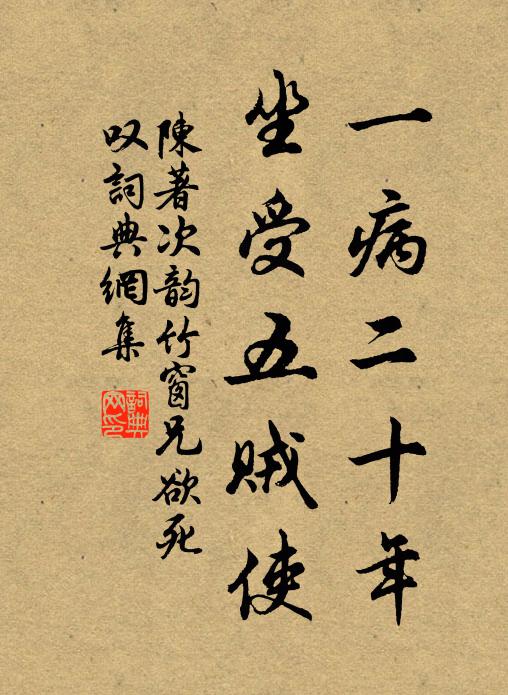 一病二十年
坐受五贼使
陳著次韵竹窗兄欲死
叹詞典網集
詞典网印